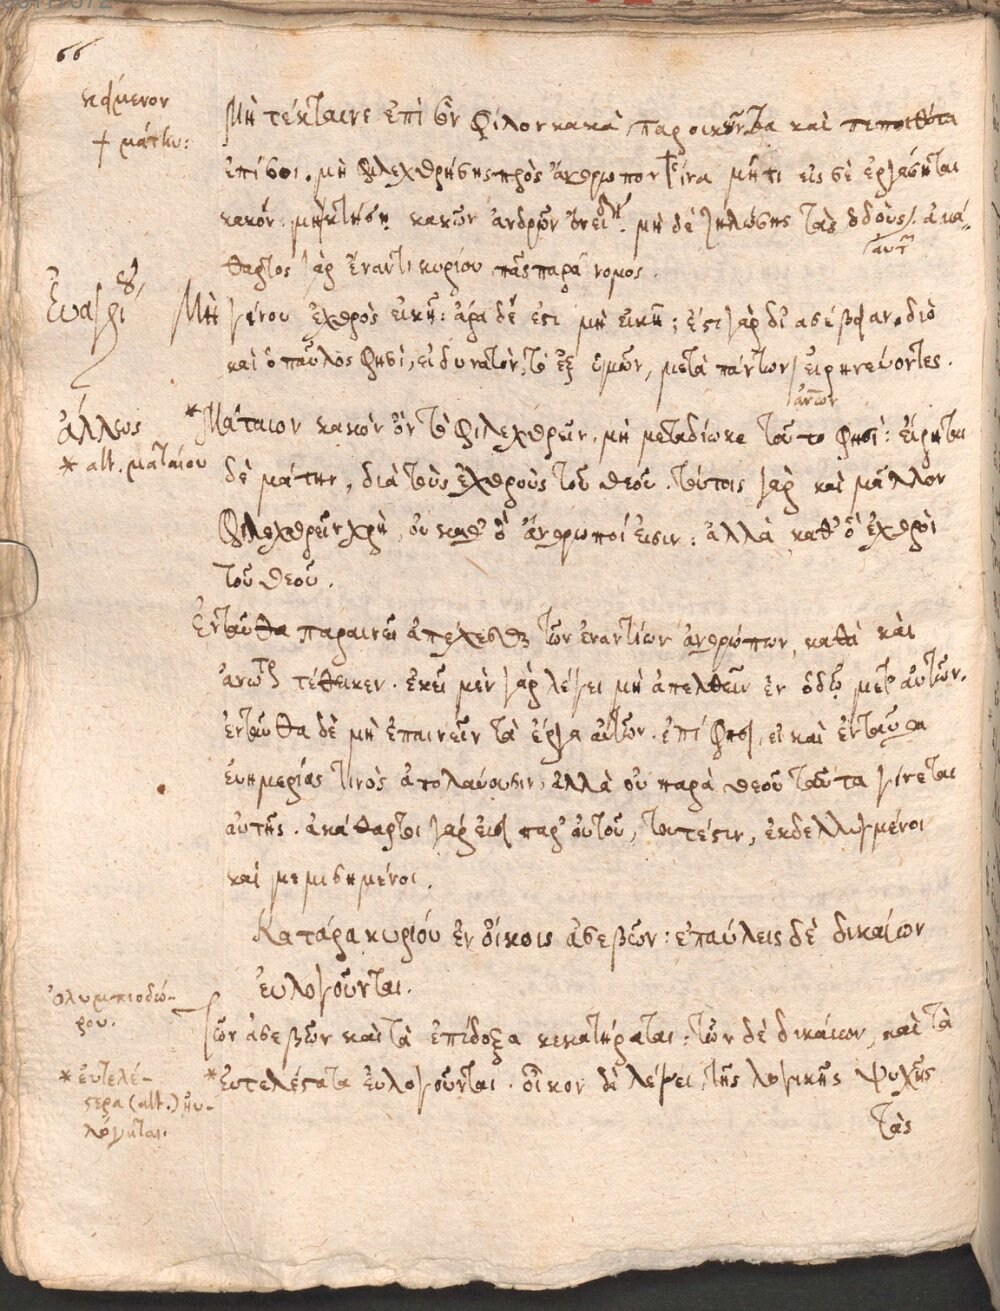 66
κείμενον
Μὴ τέκταινε ἐπὶ σὸν φίλον κακὰ, παροικοῦντα καὶ πεποιθότα
+ μάτην:
ἐπί σοι. μὴ φιλεχθρήσῃς πρὸς ἄνθρωπον + ἵνα μή τι εἰς σὲ ἐργάσηται
κακόν. μὴ κτήσῃ κακῶν ἀνδρῶν ὀνείδη. μὴ δὲ ζηλώσῃς τὰς ὁδοὺς αὐτῶν. ἀκά-
θαρτος γὰρ ἔναντι κυρίου πᾶς παράνομος.
Εὐαγρίου
Μὴ γένου ἐχθρὸς εἰκῆ: ἆρα δέ ἐστι μὴ εἰκῆ; ἔστι γὰρ δι' ἀσέβειαν. διὸ
καὶ ὁ παῦλος φησὶ, εἰ δυνατὸν, τὸ ἐξ ὑμῶν, μετὰ πάντων ἀνθρώπων εἰρηνεύοντες.
ἄλλως
* Μάταιον κακὸν ὂν τὸ φιλεχθρεῖν, μὴ μεταδίωκε τοῦτο φησί: εἴρηται
* alt. ματαίου
δὲ μάτην, διὰ τοὺς ἐχθροὺς τοῦ θεοῦ. τούτοις γὰρ καὶ μᾶλλον
φιλεχθρεῖν χρὴ, οὐ καθ' ὃ ἄνθρωποί εἰσιν: ἀλλὰ καθ' ὃ ἐχθροὶ
τοῦ θεοῦ.
Ἐνταῦθα παραινεῖ ἀπέχεσθαι τῶν ἐναντίων ἀνθρώπων, καθὰ καὶ
ἀνωτέρω τέθεικεν. ἐκεῖ μὲν γὰρ λέγει μὴ ἀπελθεῖν ἐν ὁδῷ μετ' αὐτῶν.
ἐνταῦθα δὲ μὴ ἐπαινεῖν τὰ ἔργα αὐτῶν. ἐπεί φησι, εἰ καὶ ἐνταῦθα
εὐημερίας τινὸς ἀπολαύουσιν, ἀλλὰ οὐ παρὰ θεοῦ ταῦτα γίνεται
αὐτῆς. ἀκάθαρτοι γάρ εἰσι παρ' αὐτοῦ, τουτέστιν, ἐκδεδλλυγμένοι
καὶ μεμισημένοι.
Κατάρα κυρίου ἐν οἴκοις ἀσεβῶν: ἐπαύλεις δὲ δικαίων
εὐλογοῦνται.
Ὀλυμπιοδώ-
ρου.
Τῶν ἀσεβῶν καὶ τὰ ἐπίδοξα κεκατήραται: τῶν δὲ δικαίων, καὶ τὰ
* εὐτελέ-
στερα (alt.) ηὐ-
λόγηται.
* εὐτελέστατα εὐλογοῦνται. οἶκον δὲ λέγει, τῆς λογικῆς ψυχῆς
τὰς